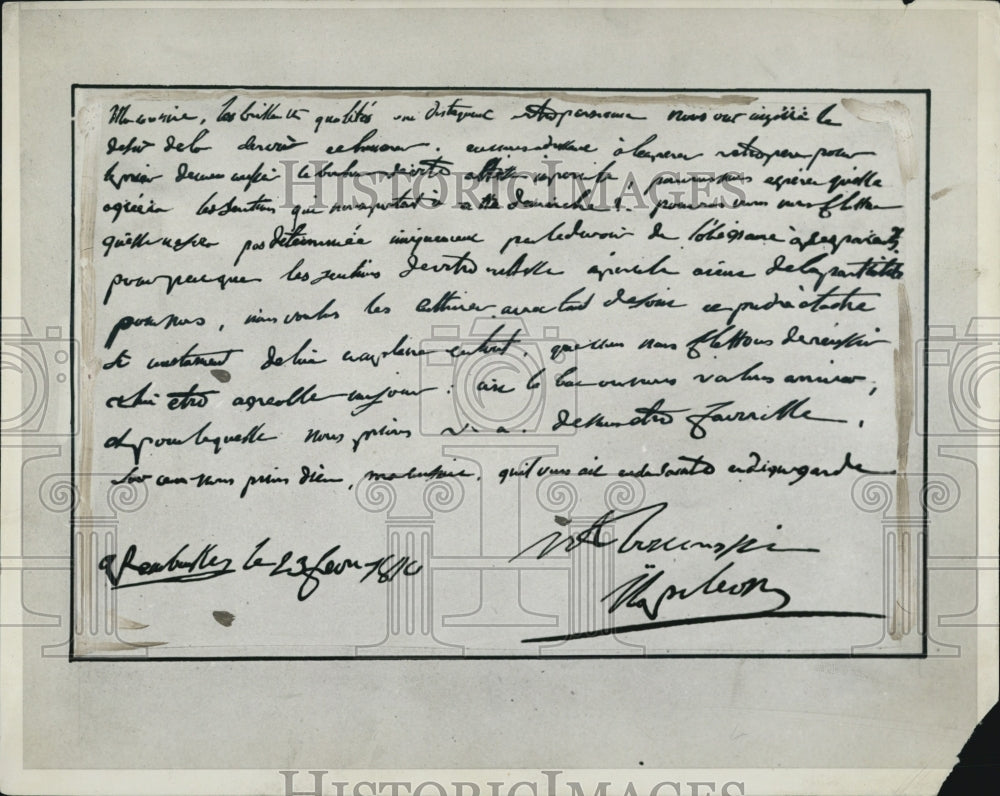 Ma cousine, les brillantes qualités qui distinguent votre personne nous ont inspiré le
desir de la servir et honorer. en nous adressant à l'empereur votre pere pour
le prier de nous confier le bonheur de votre altesse imperiale, pouvons nous esperer qu'elle
agréera les sentimens qui nous portent à cette demarche ? pouvons nous nous flatter
qu'elle ne sera pas determinée uniquement par le devoir de l'obeissance à ses parens
pour peu que les sentimens de votre altesse imperiale aient de la partialité
pour nous, nous voulons les cultiver avec tant de soin et prendre à tache
si constamment de lui complaire en tout, que nous nous flattons de reussir
à lui etre agreable un jour : c'est le but où nous voulons arriver,
et pour lequel nous prions v. a. de nous etre favorable.
Sur ce nous prions dieu, ma cousine, qu'il vous ait en sa sainte et digne garde
à Rambouillet le 23 fevr. 1810
votre bon cousin
Napoleon
HISTORIC IMAGES
HISTORIC IMAGES
HISTORIC IMAGES